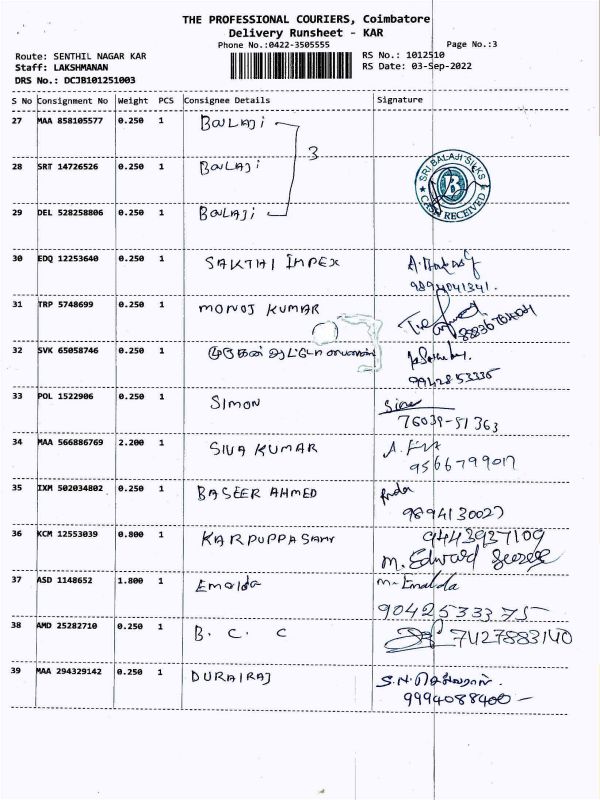 THE PROFESSIONAL COURIERS, Coimbatore
Delivery Runsheet - KAR
Phone No.:0422-3505555
Page No.:3
Route: SENTHIL NAGAR KAR
RS No.: 1012510
Staff: LAKSHMANAN
RS Date: 03-Sep-2022
DRS No.: DCJB101251003
S No Consignment No Weight PCS Consignee Details Signature
27 MAA 858105577 0.250 1 BALAJI
3
28 SRT 14726526 0.250 1 BALAJI
SRI BALAJI SILKS
CASH RECEIVED
29 DEL 528258806 0.250 1 BALAJI
30 EDQ 12253640 0.250 1 SAKTHAI IMPEX
9894041341.
31 TRP 5748699 0.250 1 MONOJ KUMAR
32 SVK 65058746 0.250 1 முருகன் ஆட்டோ
9942853335
33 POL 1522906 0.250 1 SIMON
76039-51363
34 MAA 566886769 2.200 1 SIVA KUMAR
9566799017
35 IXM 502034802 0.250 1 BASEER AHMED
9894130027
36 KCM 12553039 0.800 1 KARPUPPASAMY 9443937109
M. Edward George
37 ASD 1148652 1.800 1 Emalda M. Emalda
9042533375
38 AMD 25282710 0.250 1 B. C. C 7427883140
39 MAA 294329142 0.250 1 DURAIRAJ S.N.
9994088400 -